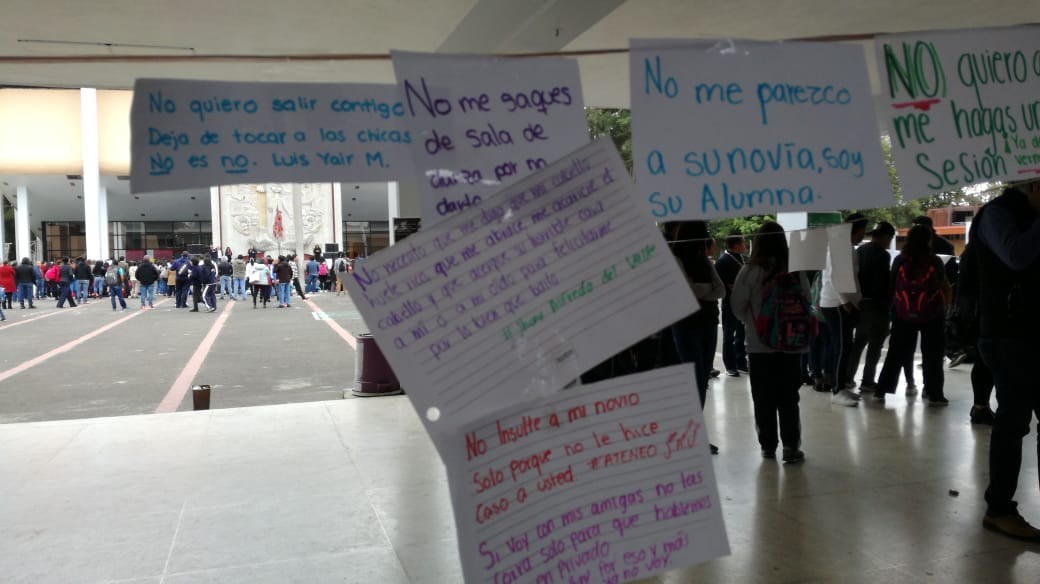 No quiero salir contigo
Deja de tocar a las chicas
No es no. Luis Yair M.
No me saques
de sala de
danza por no
No me parezco
a su novia, soy
su Alumna.
NO) quiero
me hagas
Sesión
Ya
No necesito que me diga que mi cabello
huele rico, que me abrace, me acaricie el
cabello y que acerque su horrible cara
a mi o a mi oído para felicitarme
por lo bien que bailo
del Valle
No Insulte a mi novio
Solo porque no le hice
caso a usted. #ATENEO
Si voy con mis amigas no las
corra solo para que hablemos
en Privado
por eso y más
ya no voy.